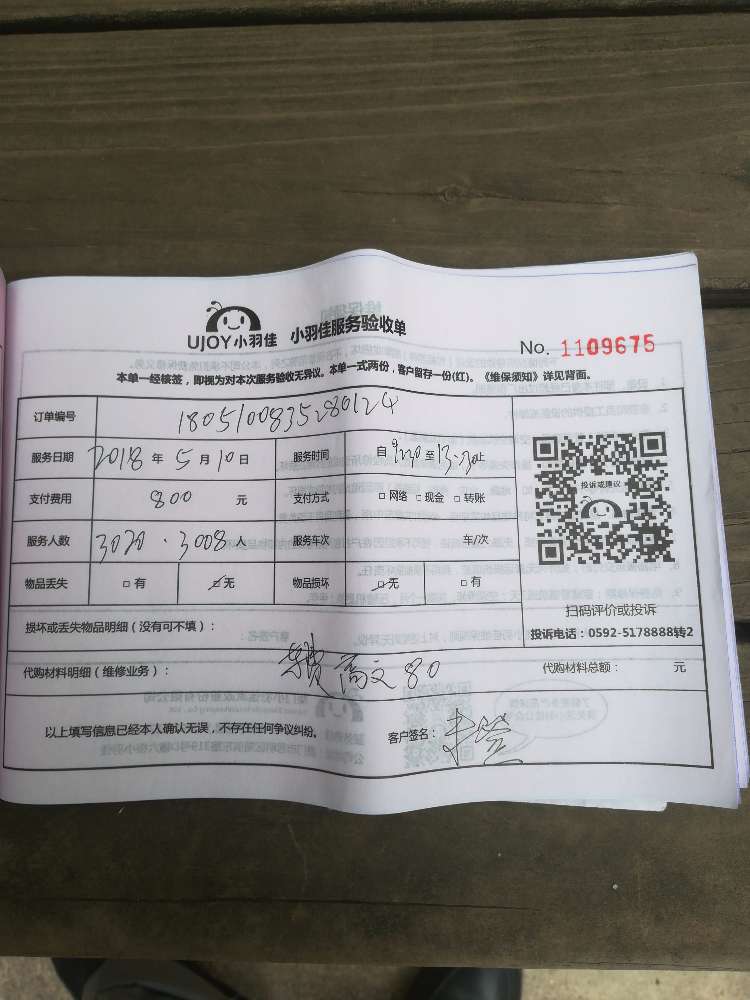 UJOY小羽佳 小羽佳服务验收单
No. 1109675
本单一经核签，即视为对本次服务验收无异议。本单一式两份，客户留存一份(红)。《维保须知》详见背面。
订单编号 1805100835280124
服务日期 2018 年 5 月 10 日 服务时间 自 至 止
支付费用 800 元 支付方式 □ 网络 □ 现金 □ 转账
服务人数 3020 . 3008 人 服务车次 车/次
物品丢失 □ 有 □无 物品损坏 □ 无 □ 有
投诉或建议
扫码评价或投诉
投诉电话：0592-5178888转2
损坏或丢失物品明细（没有可不填）：
代购材料明细（维修业务）： 高文 80 代购材料总额： 元
以上填写信息已经本人确认无误，不存在任何争议纠纷。 客户签名：